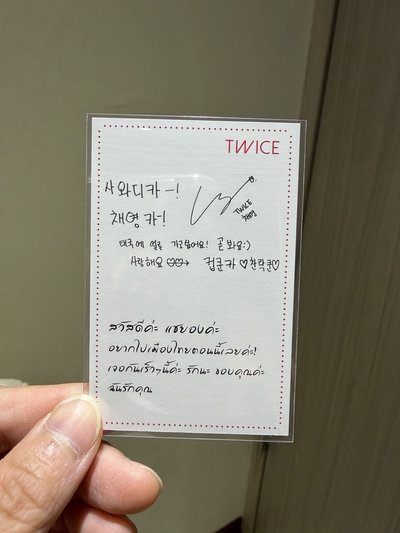 TWICE
사와디카-!
채영 카!
TWICE
채영
태국에 얼른 가고싶어요! 곧 봐요:)
사랑해요 → 컵쿤카 ♡찬락쿤♡
สวัสดีค่ะ แชยองค่ะ
อยากไปเมืองไทยตอนนี้เลยค่ะ!
เจอกันเร็วๆนี้ค่ะ รักนะ ขอบคุณค่ะ
ฉันรักคุณ